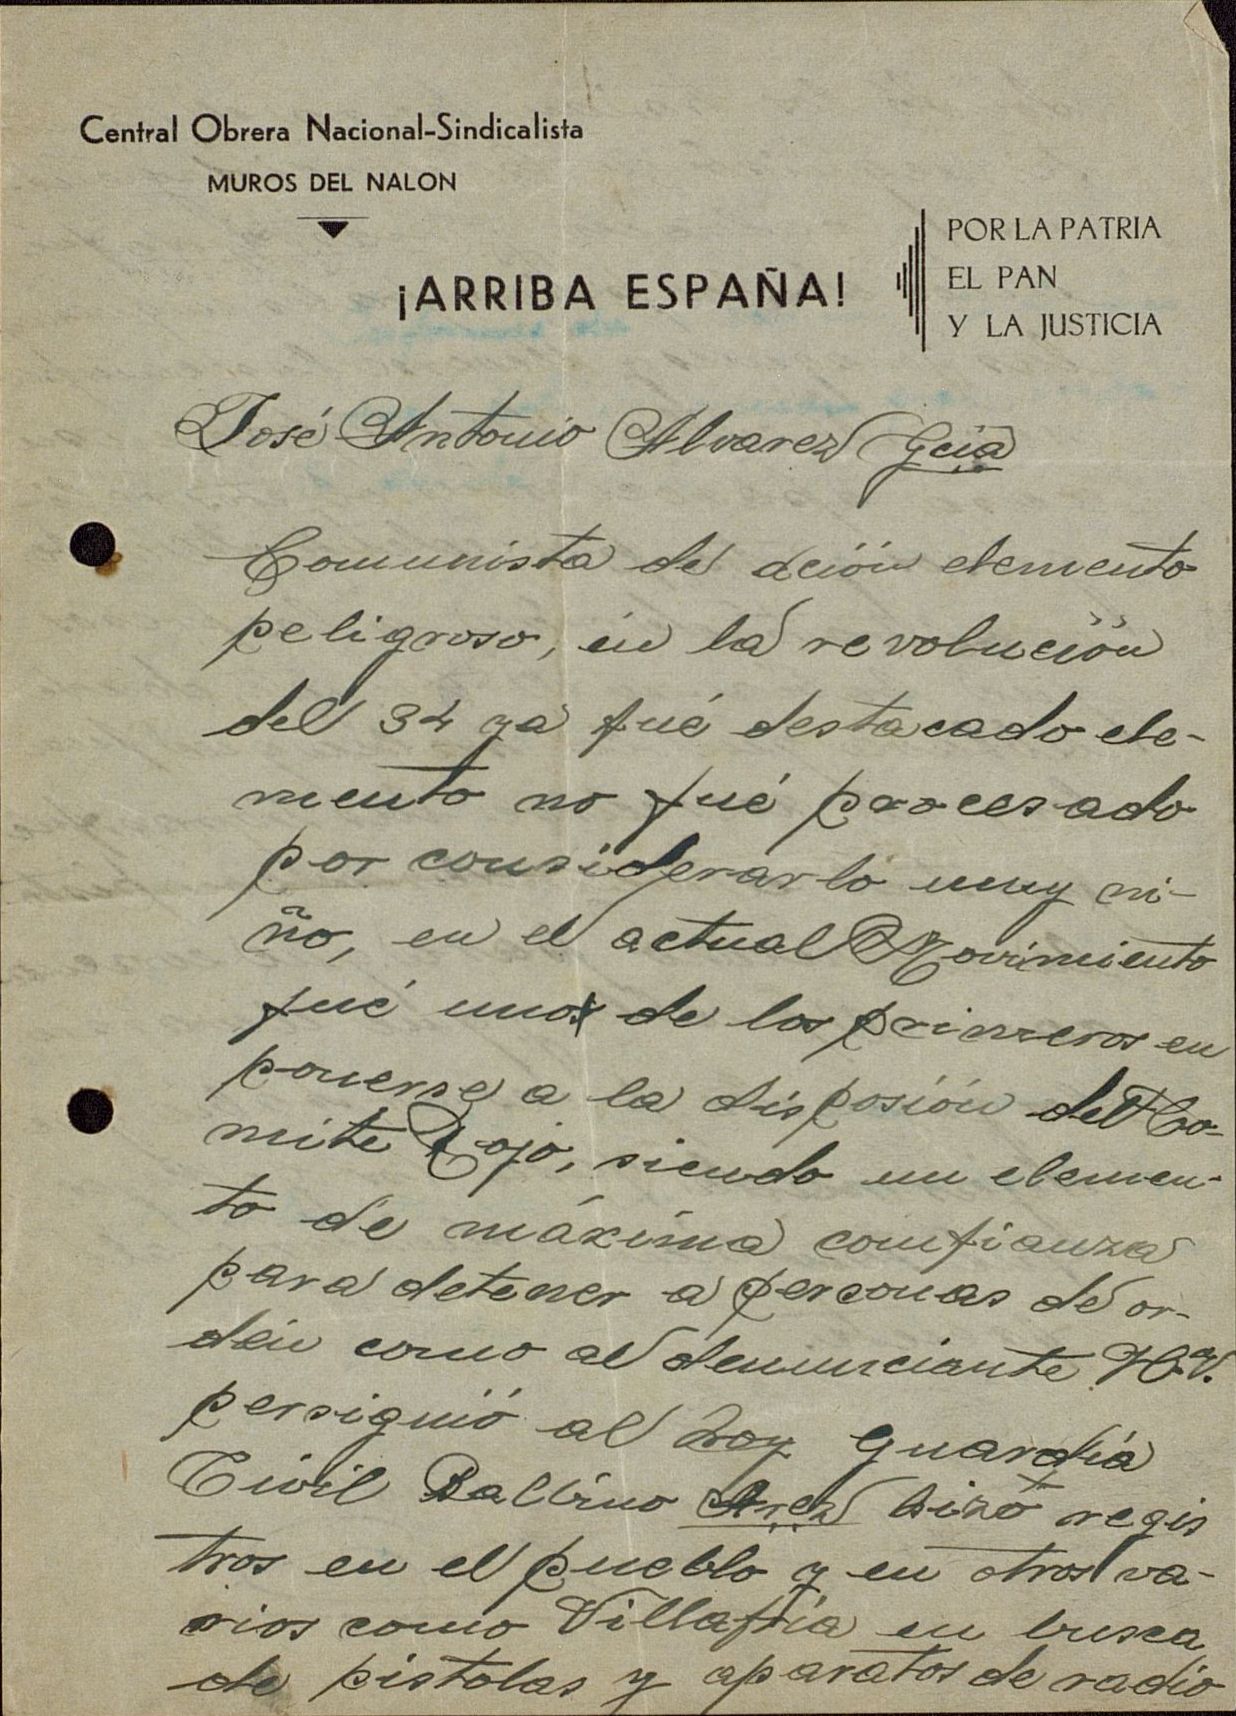 Central Obrera Nacional-Sindicalista
MUROS DEL NALON
¡ARRIBA ESPAÑA!
POR LA PATRIA
EL PAN
Y LA JUSTICIA
José Antonio Alvarez Gcia
Comunista de ación elemento
peligroso, en la revolución
del 34 ya fué destacado ele-
mento no fué procesado
por considerarlo muy ni-
ño, en el actual Movimiento
fué uno de los primeros en
ponerse a la disposión del Co-
mité Rojo, siendo un elemen-
to de máxima comfianza
para detener a personas de or-
den como al denunciante
persiguió al hoy Guardia
Civil Balbino hizo regis
tros en el pueblo y en otros va-
rios como Villafria en busca
de pistolas y aparatos de radio